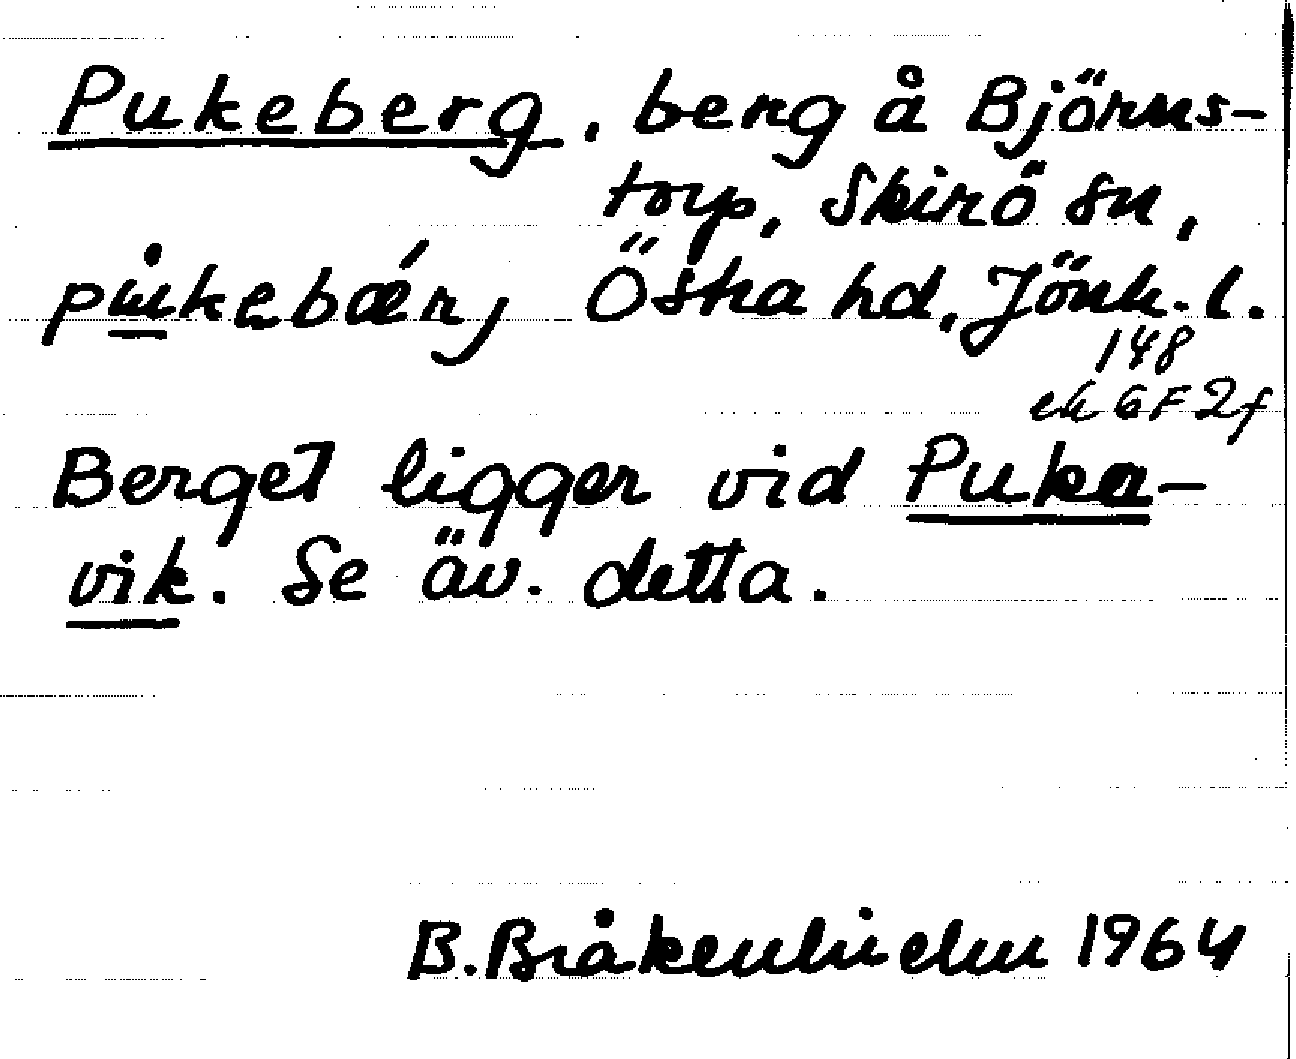 Pukeberg, berg å Björns-
torp, Skirö sn,
Östra hd, Jönk. l.
148
ek 6F2f
Berget ligger vid Puka-
vik. Se äv. detta.
B. Bråkenhielm 1964